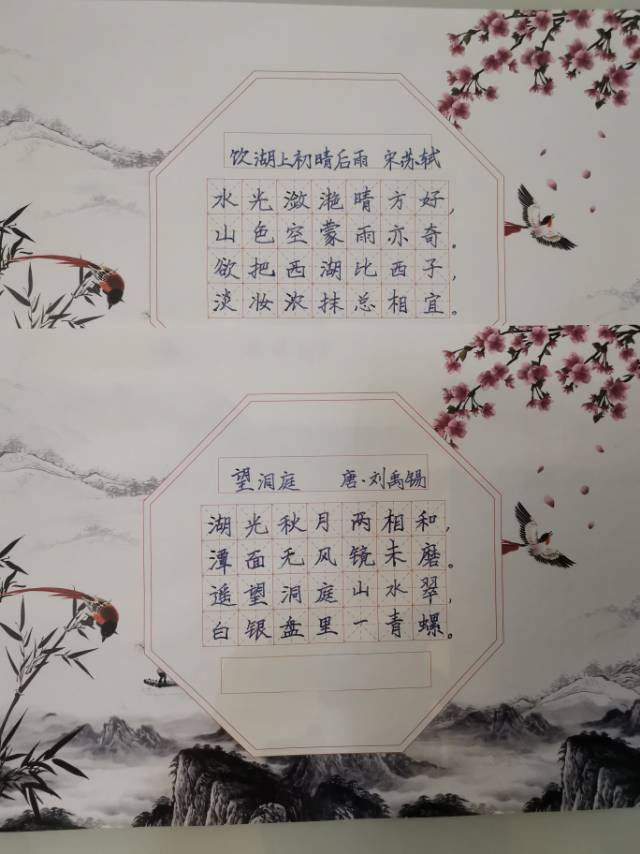 饮湖上初晴后雨 宋苏轼
水光潋滟晴方好，
山色空蒙雨亦奇。
欲把西湖比西子，
淡妆浓抹总相宜。
望洞庭 唐·刘禹锡
湖光秋月两相和，
潭面无风镜未磨。
遥望洞庭山水翠，
白银盘里一青螺。